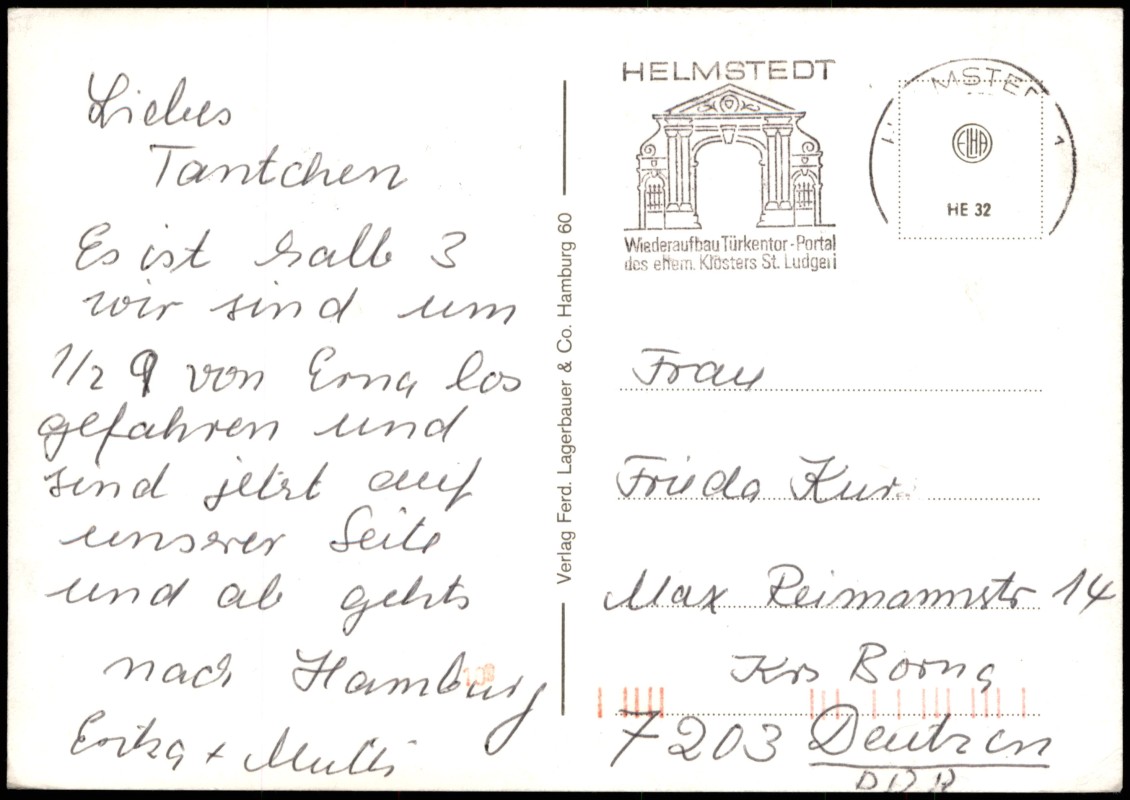 Liebes
Tantchen
Es ist halb 3
wir sind um
1/2 9 von Erna los
gefahren und
sind jetzt auf
unserer Seite
und ab gehts
nach Hamburg
Erika + Mutti
Verlag Ferd. Lagerbauer & Co. Hamburg 60
HELMSTEDT
Wiederaufbau Türkentor-Portal
des ehem. Klosters St. Ludgeri
1
HE 32
Frau
Frieda Kur
Max Reimannstr 14
Krs Borna
7203 Deutzen
DDR